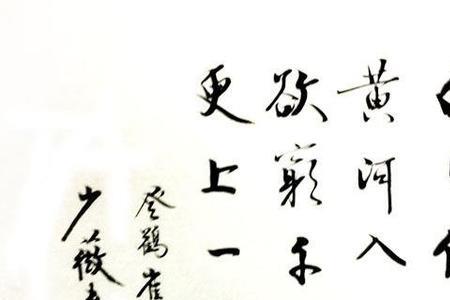 黄河入
欲窮千
更上一
登鹳雀
少薇